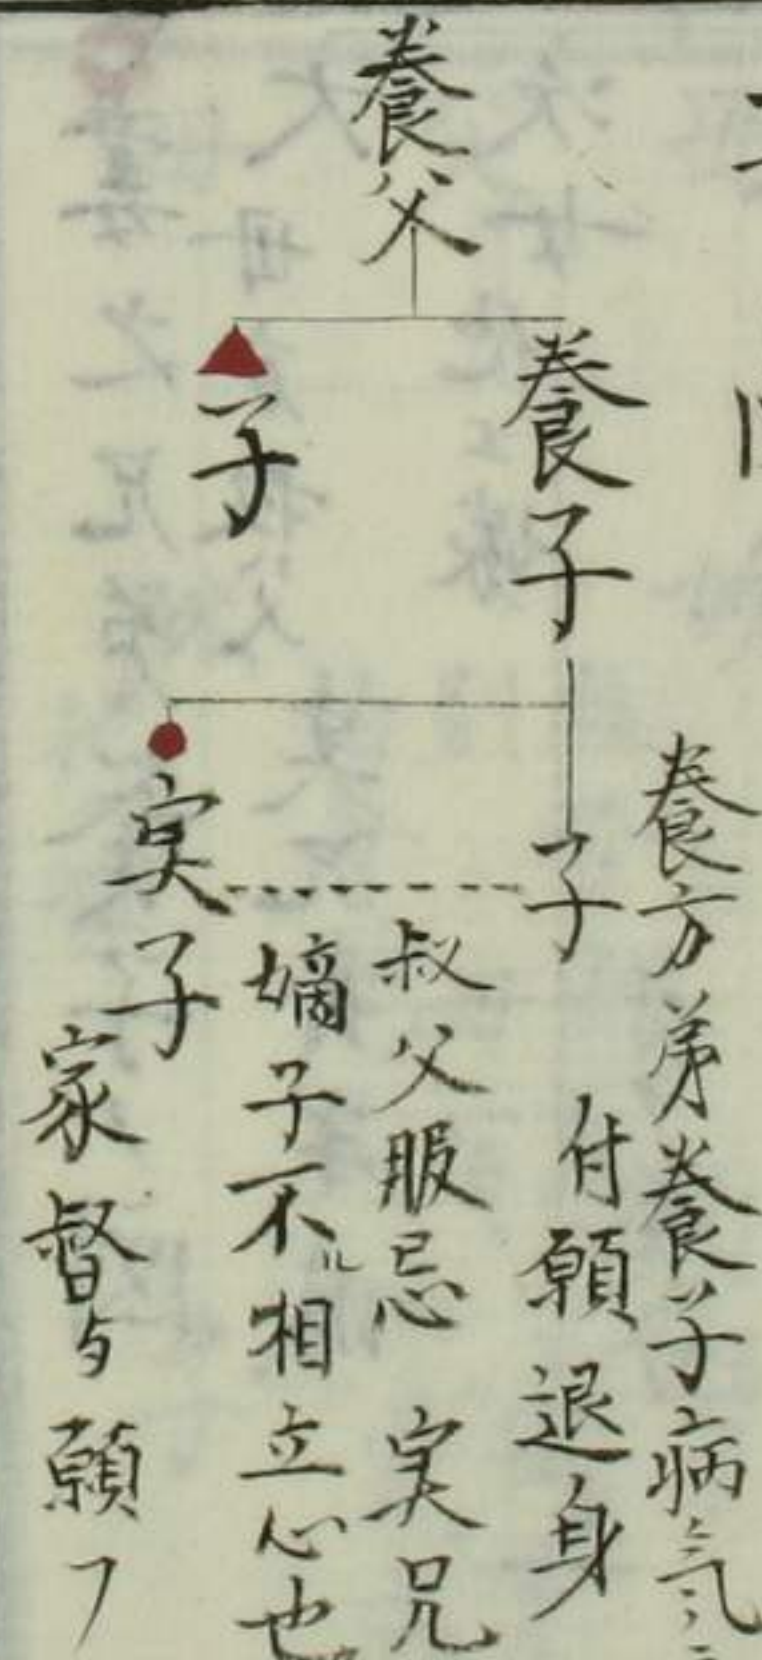 養父
養子
子
子
実子
養方弟養子病気ニ
付願退身
叔父服忌 実兄
嫡子不相立心也
家督与願